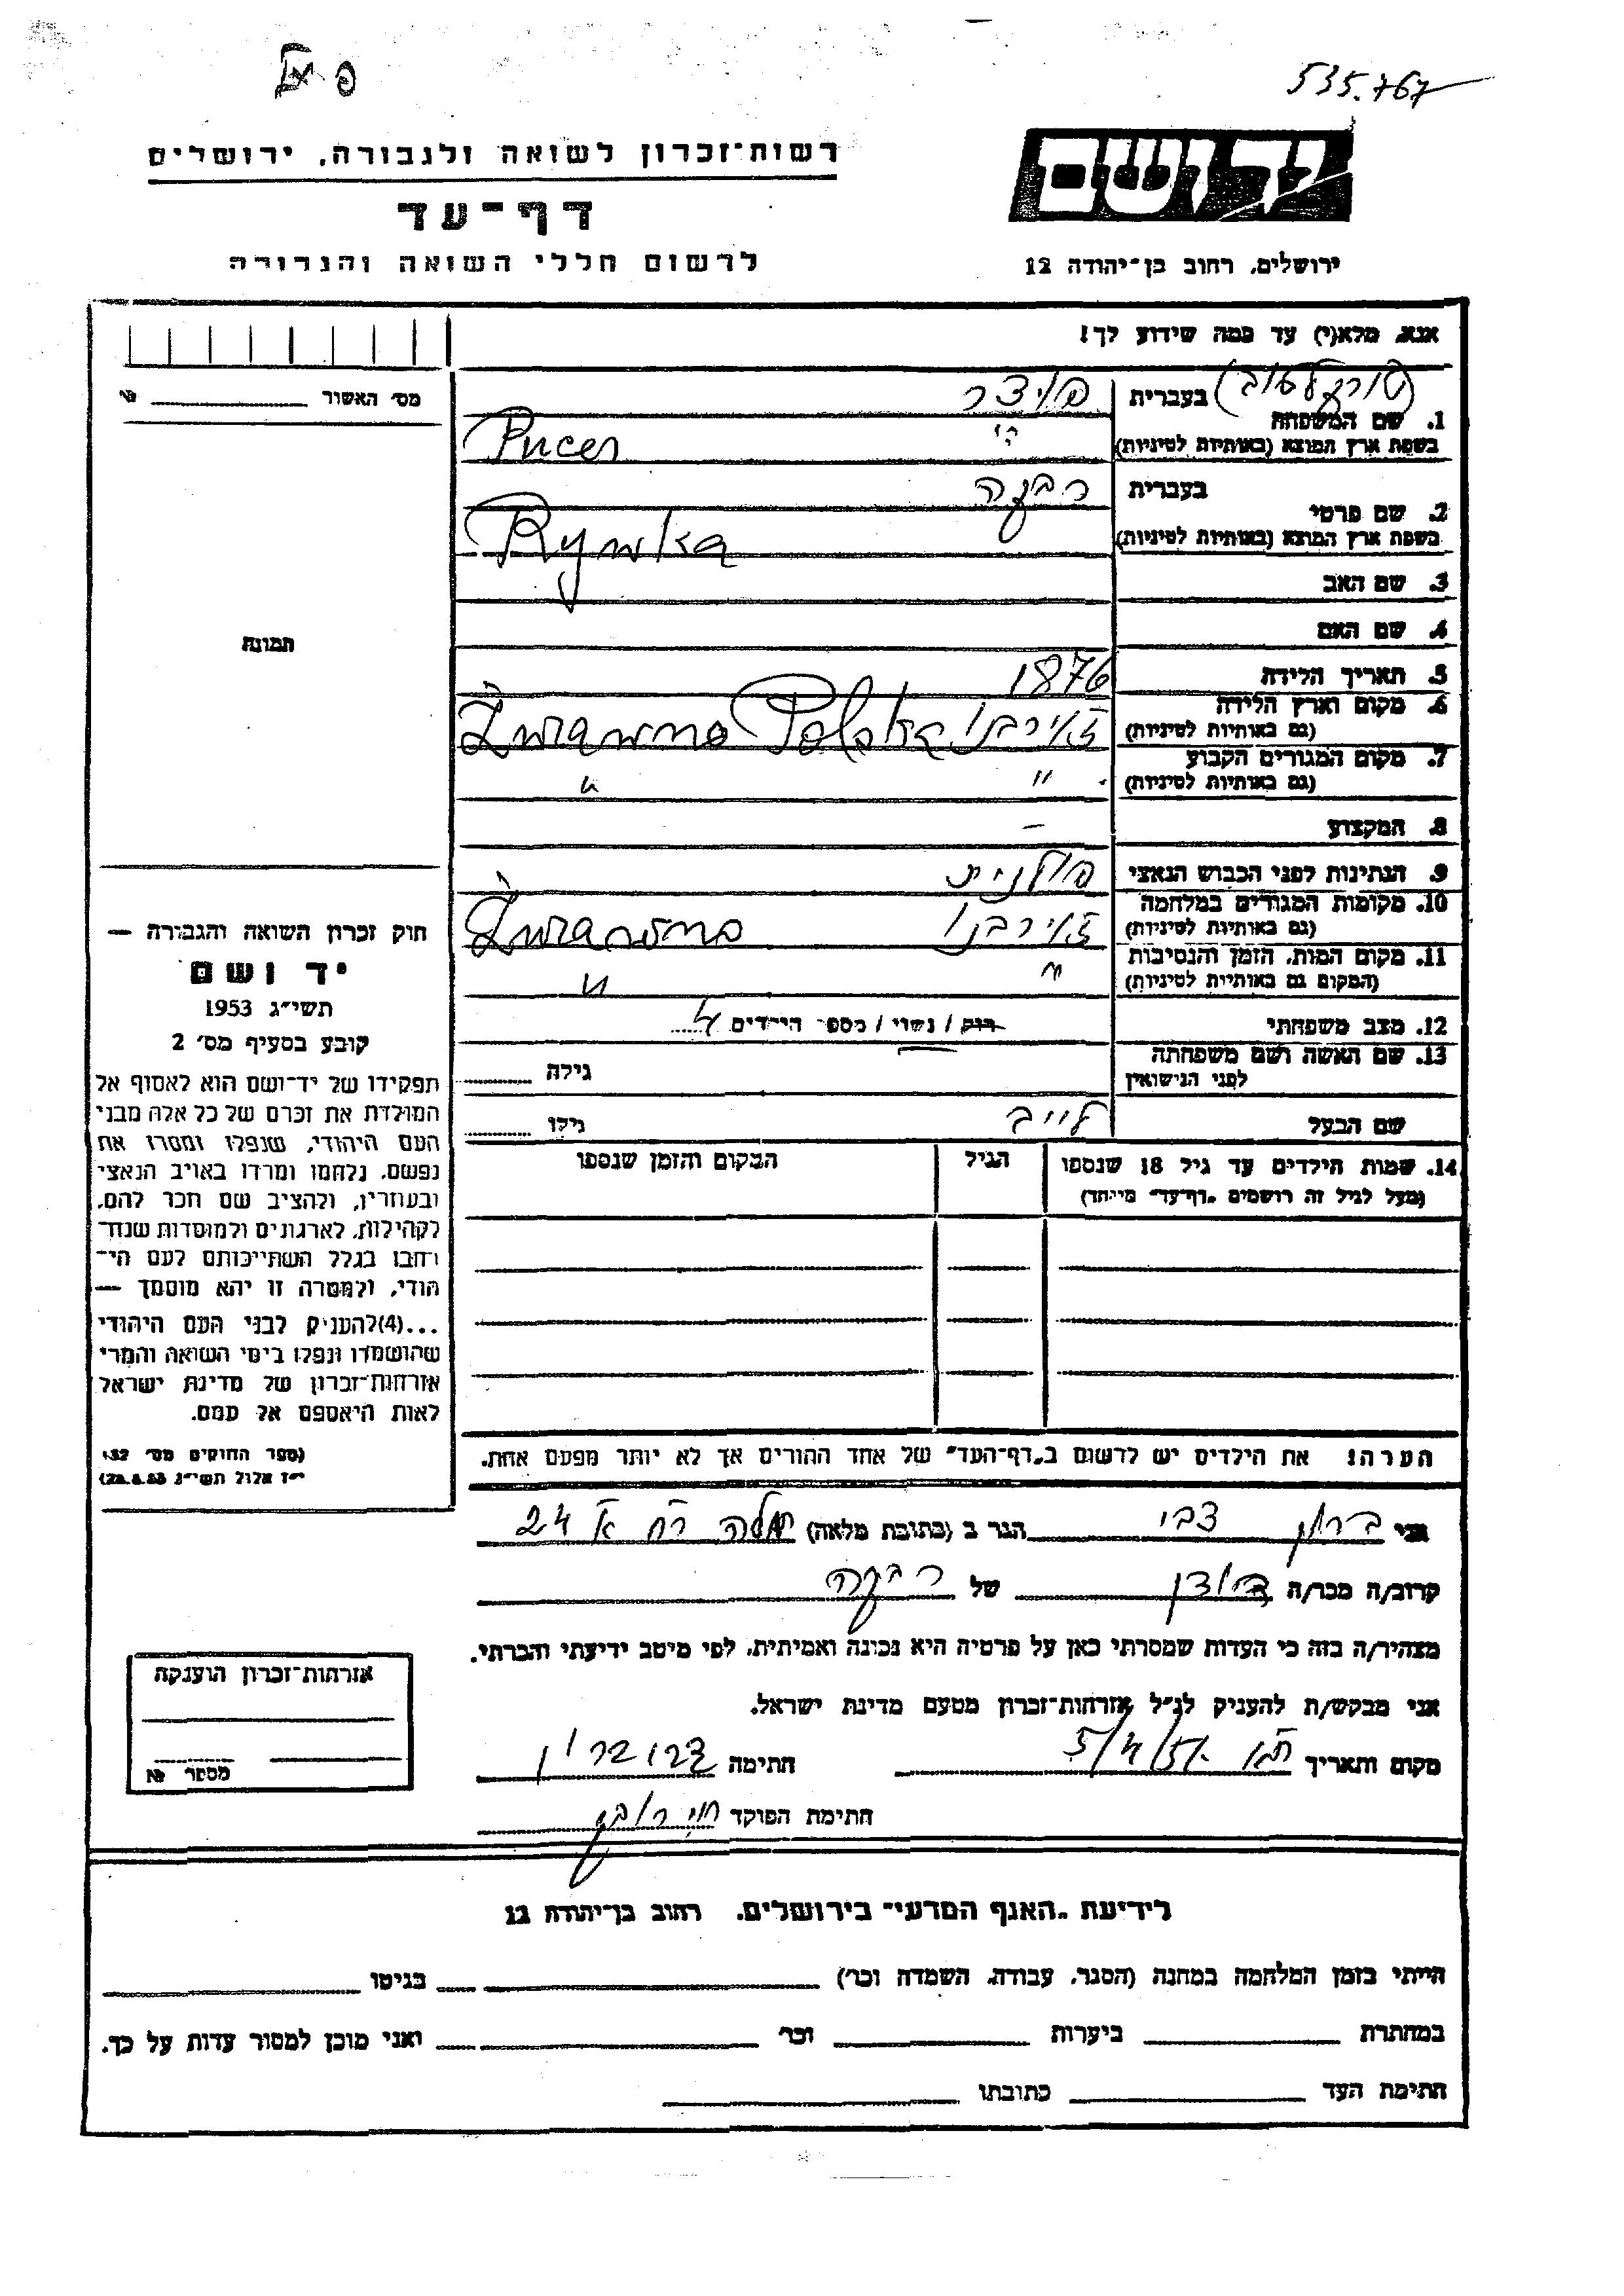 535.767
רשות־זכרון לשואה ולגבורה, ירושלים
יד ושם
דף־עד
לרשום חללי השואה והגבורה
ירושלים, רחוב בן־יהודה 12
אנא, מלא(י) עד כמה שידוע לך!
מס׳ האשור №
1. שם המשפחה
בעברית פוצר
בשפת ארץ המוצא (באותיות לטיניות) Pucer
2. שם פרטי
בעברית רבקה
בשפת ארץ המוצא (באותיות לטיניות) Rywka
3. שם האב
4. שם האם
תמונה
5. תאריך הלידה 1876
6. מקום וארץ הלידה
(גם באותיות לטיניות) Żurawno Polska
7. מקום המגורים הקבוע
(גם באותיות לטיניות) " "
8. המקצוע –
9. הנתינות לפני הכבוש הנאצי פולנית
10. מקומות המגורים במלחמה
(גם באותיות לטיניות) Żurawno
11. מקום המות, הזמן והנסיבות
(המקום גם באותיות לטיניות) " "
12. מצב משפחתי רווק / נשוי / מספר הילדים 4
13. שם האשה ושם משפחתה
לפני הנישואין גילה
שם הבעל לייב גילו
14. שמות הילדים עד גיל 18 שנספו
(מעל לגיל זה רושמים „דף־עד" מיוחד)
הגיל
המקום והזמן שנספו
חוק זכרון השואה והגבורה —
יד ושם
תשי״ג 1953
קובע בסעיף מס׳ 2
תפקידו של יד־ושם הוא לאסוף אל
המולדת את זכרם של כל אלה מבני
העם היהודי, שנפלו ומסרו את
נפשם, נלחמו ומרדו באויב הנאצי
ובעוזריו, ולהציב שם וזכר להם,
לקהילות, לארגונים ולמוסדות שנח־
רבו בגלל השתייכותם לעם הי־
הודי, ולמטרה זו יהא מוסמך —
...(4)להעניק לבני העם היהודי
שהושמדו ונפלו בימי השואה והמרי
אזרחות־זכרון של מדינת ישראל
לאות היאספם אל עמם.
(ספר החוקים מס׳ 132
י״ז אלול תשי״ג 28.8.53)
הערה! את הילדים יש לרשום ב„דף־העד" של אחד ההורים אך לא יותר מפעם אחת.
אני ברון צבי הגר ב (כתובת מלאה) 24
קרוב/ה מכר/ה של רבקה
מצהיר/ה בזה כי העדות שמסרתי כאן על פרטיה היא נכונה ואמיתית, לפי מיטב ידיעתי והכרתי.
אני מבקש/ת להעניק לנ״ל אזרחות־זכרון מטעם מדינת ישראל.
מקום ותאריך חתימה צבי ברון
חתימת הפוקד
אזרחות־זכרון הוענקה
מספר №
לידיעת „האגף המדעי" בירושלים, רחוב בן־יהודה 12
הייתי בזמן המלחמה במחנה (הסגר, עבודה, השמדה וכו׳) בגיטו
במחתרת ביערות וכו׳ ואני מוכן למסור עדות על כך.
חתימת העד כתובתו